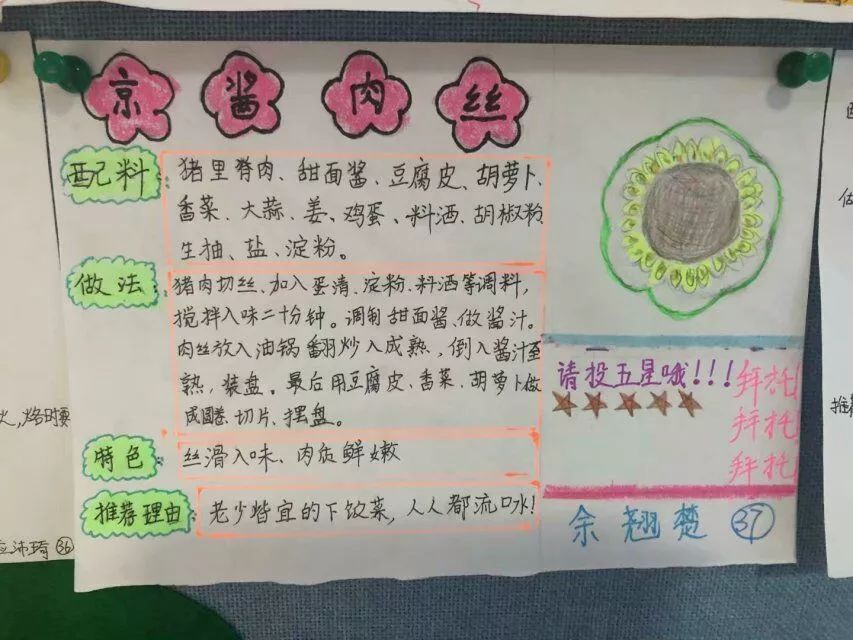 京酱肉丝
配料：猪里脊肉、甜面酱、豆腐皮、胡萝卜、
香菜、大蒜、姜、鸡蛋、料酒、胡椒粉
生抽、盐、淀粉。
做法：猪肉切丝、加入蛋清、淀粉、料酒等调料，
搅拌入味二十分钟。调制甜面酱、做酱汁。
肉丝放入油锅翻炒入成熟，倒入酱汁至
熟，装盘。最后用豆腐皮、香菜、胡萝卜做
成圈、切片、摆盘。
特色：丝滑入味、肉质鲜嫩
推荐理由：老少皆宜的下饭菜，人人都流口水！
请投五星哦！！！
拜托！
拜托！
拜托！
余翘楚 37
火，烙时要
沛琦 36
做
推